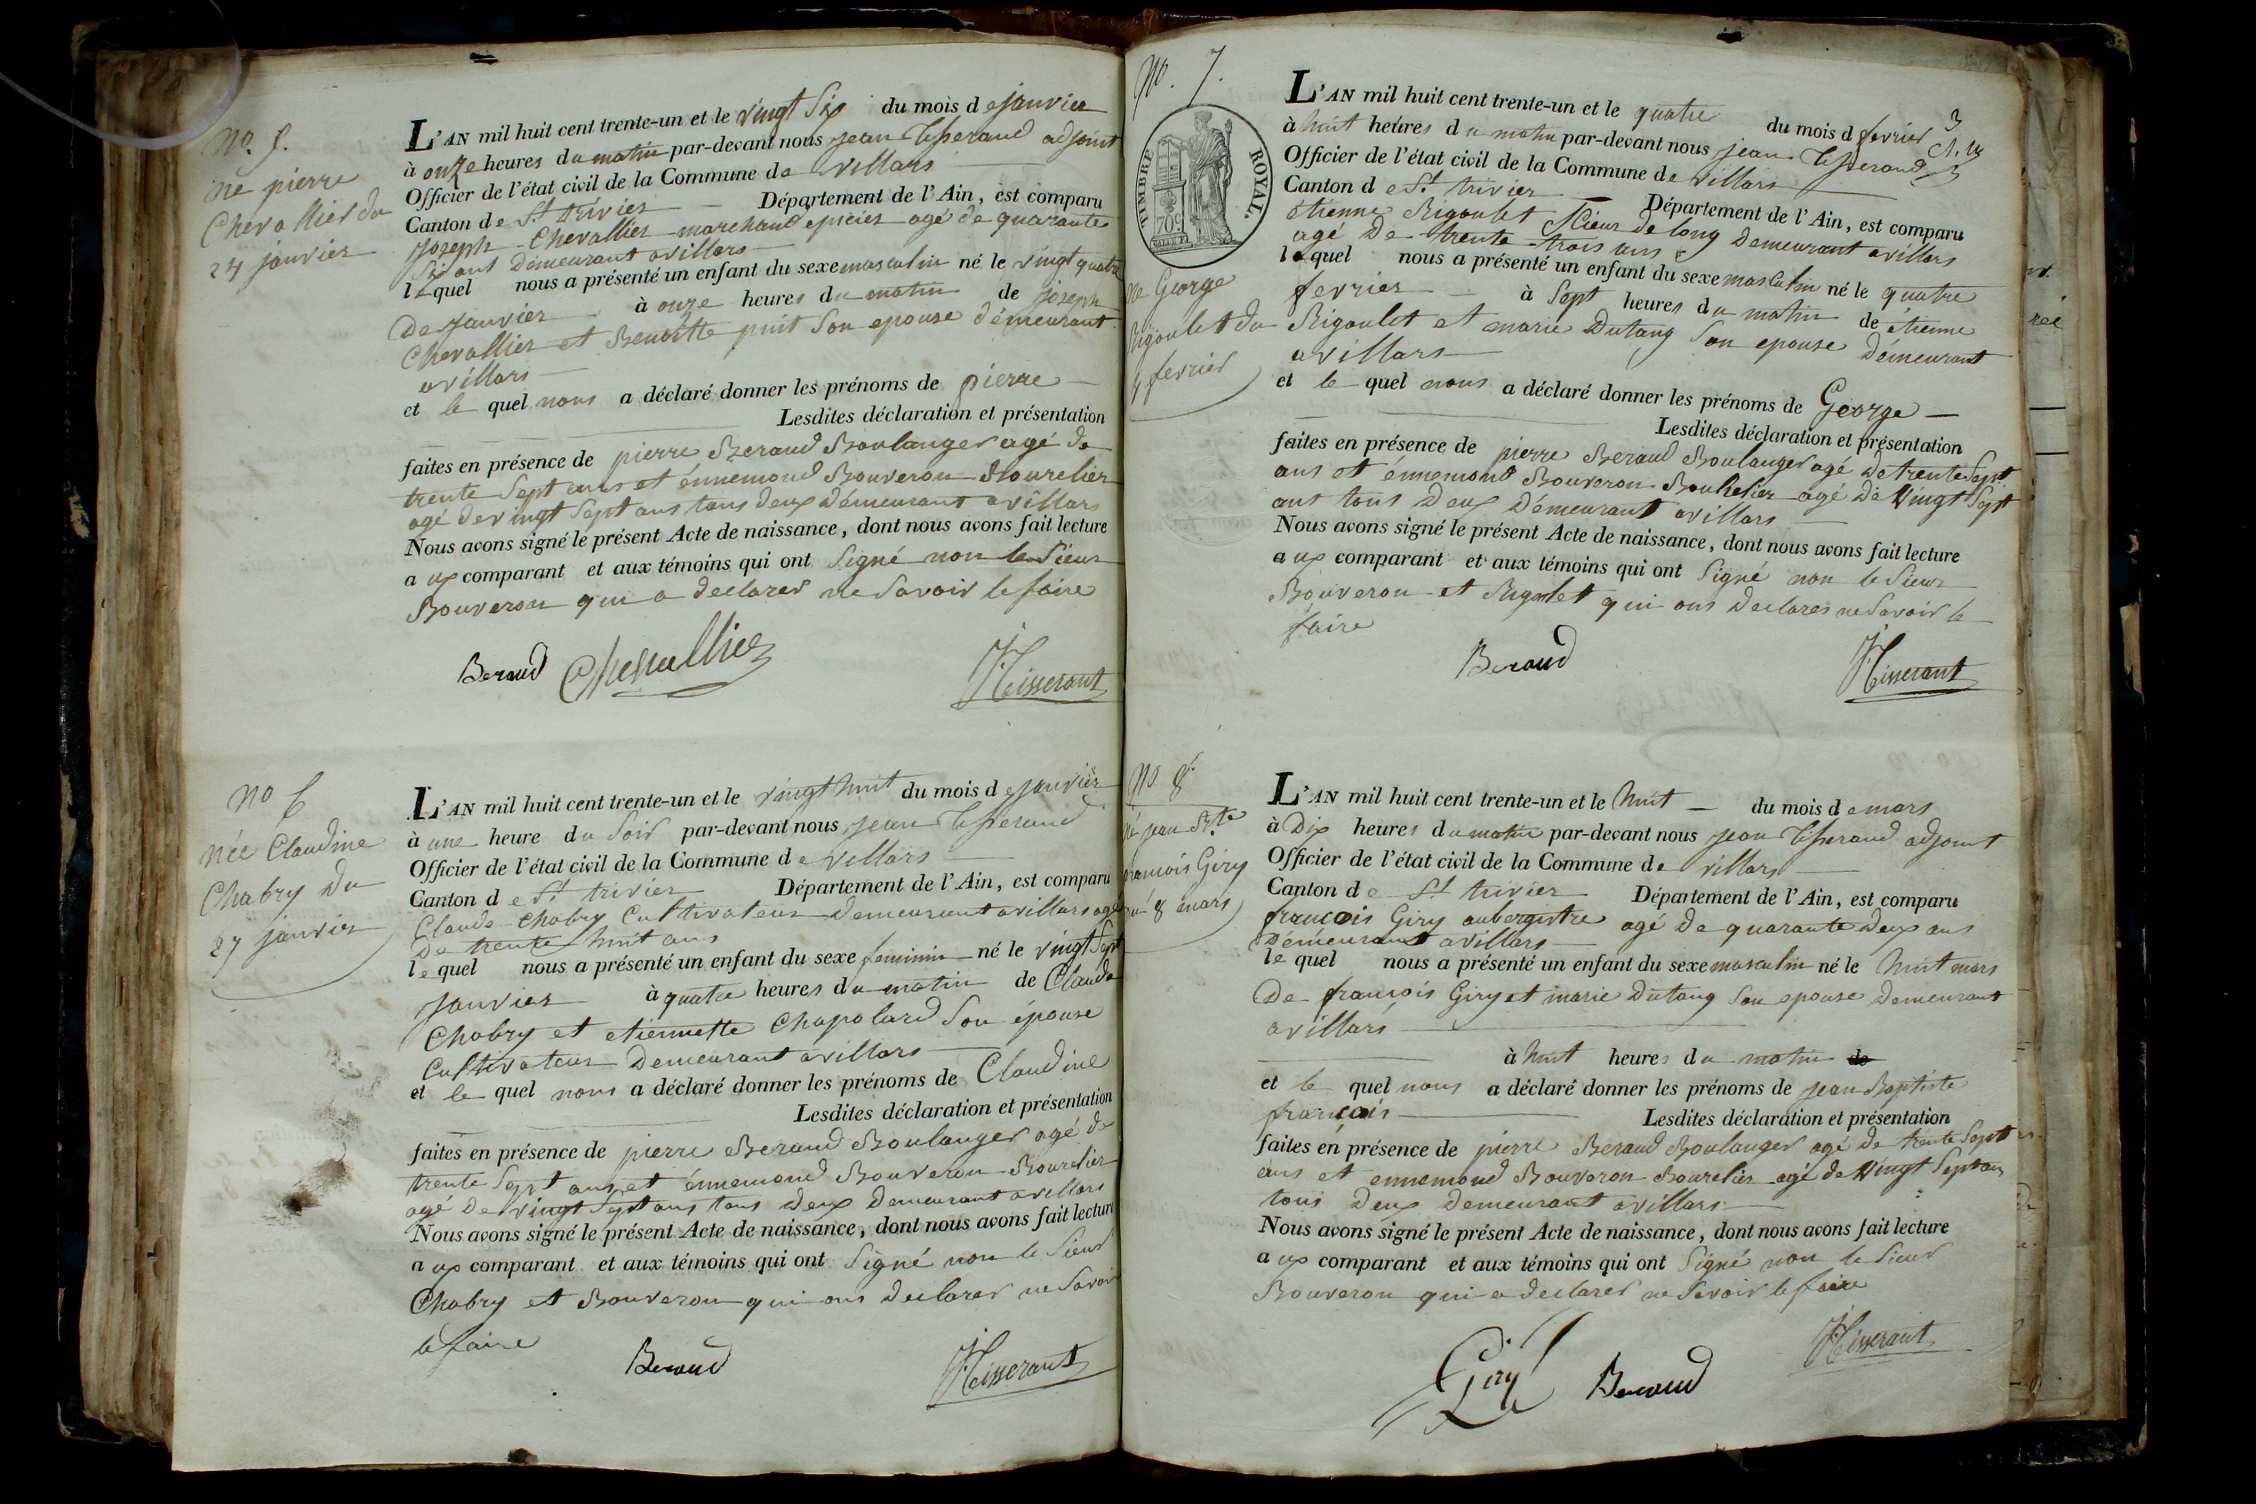 No. 5.
né pierre
Chevallier du
24 janvier
L'AN mil huit cent trente-un et le vingt Six du mois de janvier
à onze heures du matin par-devant nous jean tisserand adjoint
Officier de l'état civil de la Commune de villars
Canton de St trivier Département de l'Ain, est comparu
joseph Chevallier marchand epicier agé de quarante
Six ans demeurant avillars
lequel nous a présenté un enfant du sexe masculin né le vingt quatre
De janvier à onze heures du matin de joseph
Chevallier et Benoitte puit Son epouse démeurant
avillars
et le quel nous a déclaré donner les prénoms de pierre
Lesdites déclaration et présentation
faites en présence de pierre Beraud Boulanger agé de
trente Sept ans et énnemond Bouveron Bourelier
agé de vingt Sept ans tous deux démeurant avillars
Nous avons signé le présent Acte de naissance, dont nous avons fait lecture
aux comparant et aux témoins qui ont Signé non le Sieur
Bouveron qui a declarer ne Savoir le faire
Beraud Chevallier J Tisserant
No 6
née Claudine
Chabry du
27 janvier
L'AN mil huit cent trente-un et le vingt huit du mois de janvier
à une heure du Soir par-devant nous jean tisserand
Officier de l'état civil de la Commune de villars
Canton de St trivier Département de l'Ain, est comparu
Claude Chabry Cultivateur demeurant avillars agé
De trente huit ans
lequel nous a présenté un enfant du sexe feminin né le vingt Sept
janvier à quatre heures du matin de Claude
Chabry et etiennette Chapolard Son épouse
Cultivateur Demeurant avillars
et le quel nous a déclaré donner les prénoms de Claudine
Lesdites déclaration et présentation
faites en présence de pierre Beraud Boulanger agé de
trente Sept ans et énnemond Bouveron Bourelier
agé de vingt Sept ans tous deux demeurant avillars
Nous avons signé le présent Acte de naissance, dont nous avons fait lecture
aux comparant et aux témoins qui ont Signé non le Sieur
Chabry et Bouveron qui ons declarer ne Savoir
le faire
Beraud J Tisserant
No. 7.
TIMBRE ROYAL.
70c
né George
Rigoulet du
4 fevrier
L'AN mil huit cent trente-un et le quatre du mois d fevrier
à huit heures du matin par-devant nous jean tisserand
Officier de l'état civil de la Commune de villars
Canton de St trivier Département de l'Ain, est comparu
étienne Rigoulet Scieur de long Demeurant avillars
agé De trente trois ans
lequel nous a présenté un enfant du sexe masculin né le quatre
fevrier à Sept heures du matin de étienne
Rigoulet et marie Dutang Son epouse Démeurant
avillars
et le quel nous a déclaré donner les prénoms de George
Lesdites déclaration et présentation
faites en présence de pierre Beraud Boulanger agé de trente Sept
ans et énnemond Bouveron Bourlelier agé De Vingt Sept
ans tous Deux Démeurant avillars
Nous avons signé le présent Acte de naissance, dont nous avons fait lecture
aux comparant et aux témoins qui ont Signé non le Sieur
Bouveron et Rigoulet qui ons Declarer ne Savoir le
faire
Beraud J Tisserant
No 8
né jean Bte
francois Giry
du 8 mars
L'AN mil huit cent trente-un et le huit du mois de mars
à Dix heures du matin par-devant nous jean tisserand adjoint
Officier de l'état civil de la Commune de villars
Canton de St trivier Département de l'Ain, est comparu
françois Giry aubergistre agé De quarante Deux ans
Démeurant avillars
lequel nous a présenté un enfant du sexe masculin né le huit mars
De françois Giry et marie Dutang Son epouse Demeurant
avillars
à huit heures du matin de
et le quel nous a déclaré donner les prénoms de jean Baptiste
françois Lesdites déclaration et présentation
faites en présence de pierre Beraud Boulanger agé De trente Sept
ans et ennemond Bouveron Bourelier agé de Vingt Sept ans
tous Deux Demeurant avillars
Nous avons signé le présent Acte de naissance, dont nous avons fait lecture
aux comparant et aux témoins qui ont Signé non le Sieur
Bouveron qui a declarer ne Savoir le faire
Giry Beraud J Tisserant